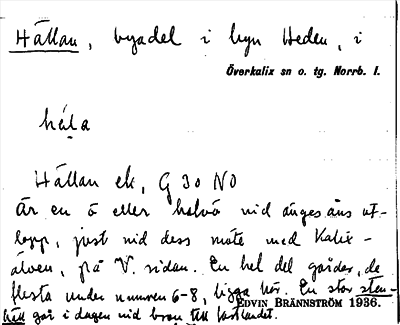 Hällan, byadel i byn Heden, i
Överkalix sn o. tg. Norrb. l.
hála
Hällan ek, G 30 NO
Är en ö eller halvö vid änges åns ut-
lopp, just vid dess möte med Kalix-
älven, på V. sidan. En hel del gårdar, de
flesta under numren 6-8, ligga här. En stor sten-
häll går i dagen vid bron till fastlandet.
EDVIN BRÄNNSTRÖM 1936.